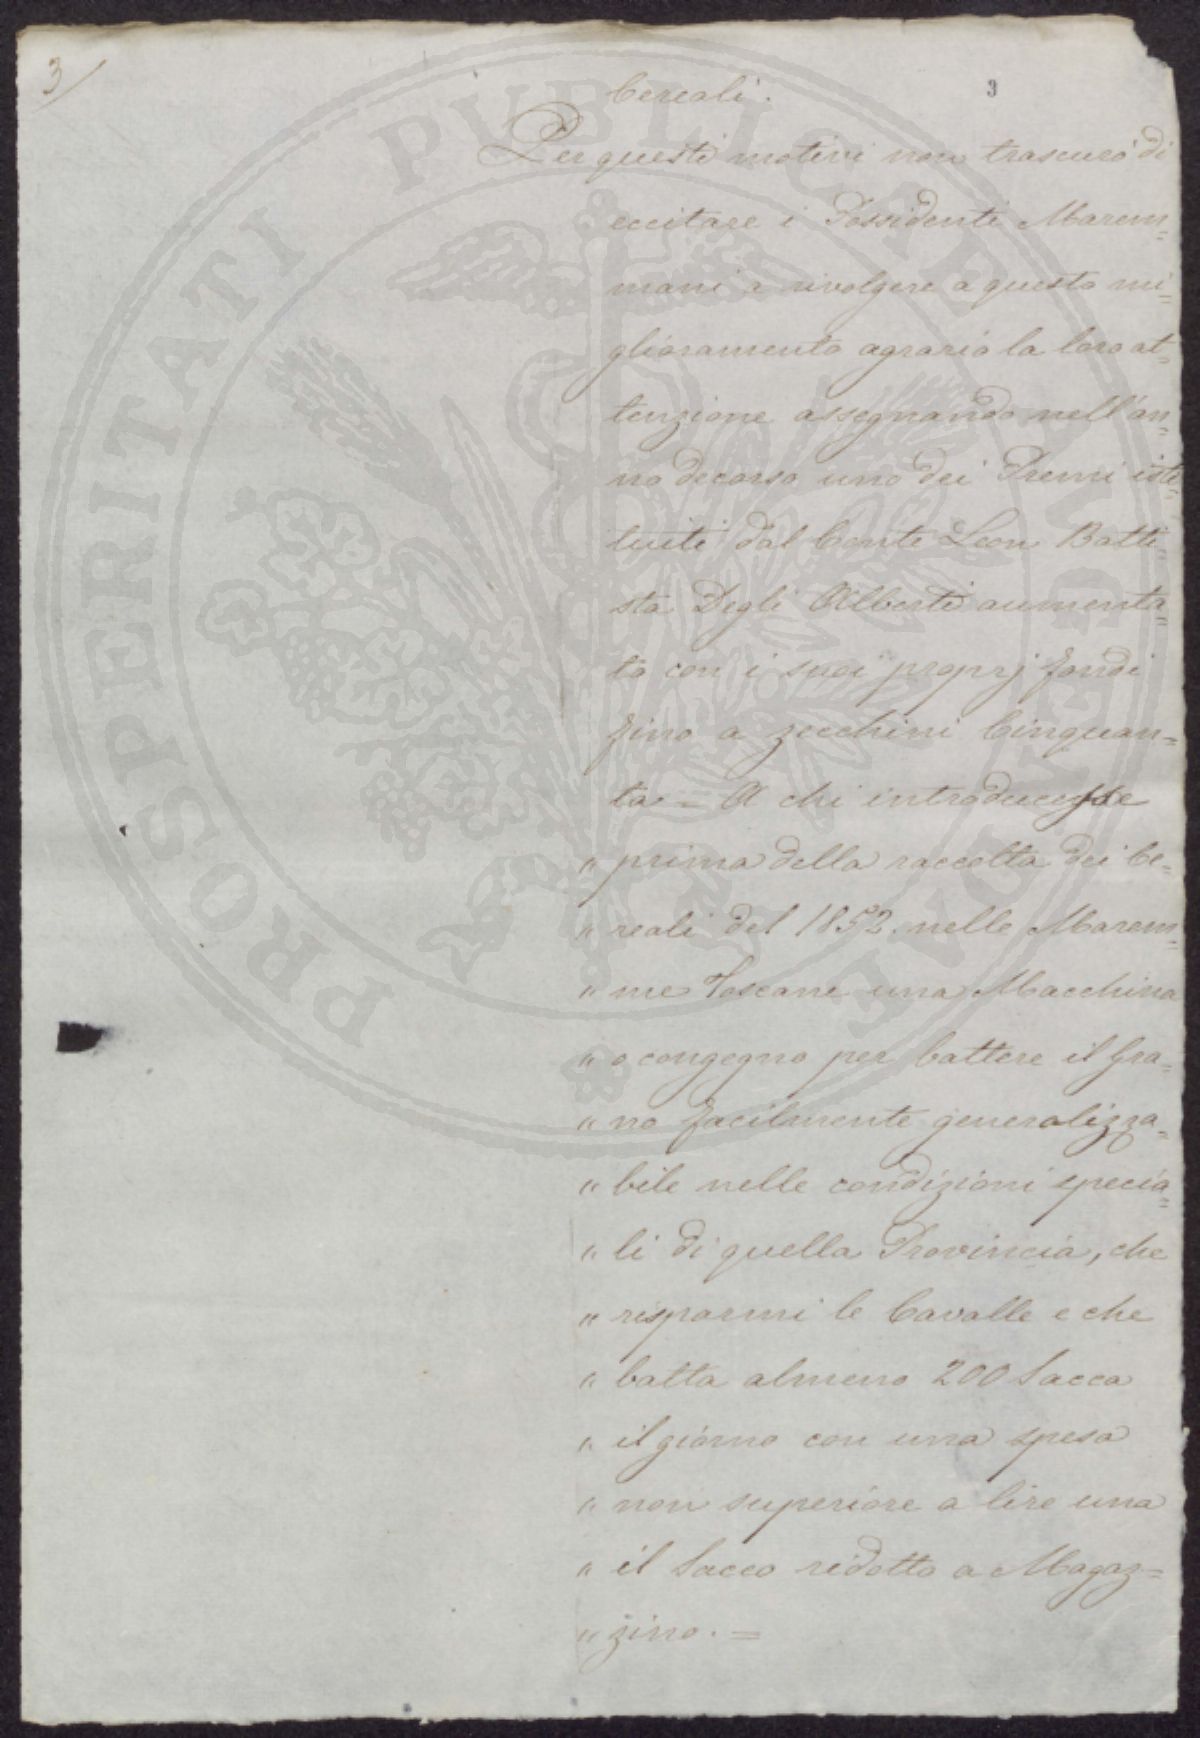 3/
3
Cereali.
Per questi motivi non trascurò di
eccitare i Possidenti Marem=
mani a rivolgere a questo mi=
glioramento agrario la loro at=
tenzione assegnando nell'an=
no decorso uno dei Premi isti=
tuiti dal Conte Leon Batti=
sta Degli Alberti aumenta=
to con i suoi proprj fondi
fino a zecchini Cinquan=
ta = A chi introducesse
" prima della raccolta dei Ce=
" reali del 1852. nelle Marem=
" me Toscane una Macchina
" o congegno per battere il Gra=
" no facilmente generalizza=
" bile nelle condizioni specia=
" li di quella Provincia, che
" risparmi le Cavalle e che
" batta almeno 200 Sacca
" il giorno con una spesa
" non superiore a lire una
" il Sacco ridotto a Magaz=
" zino. =
PROSPERITATI PUBLICAE AUGENDAE